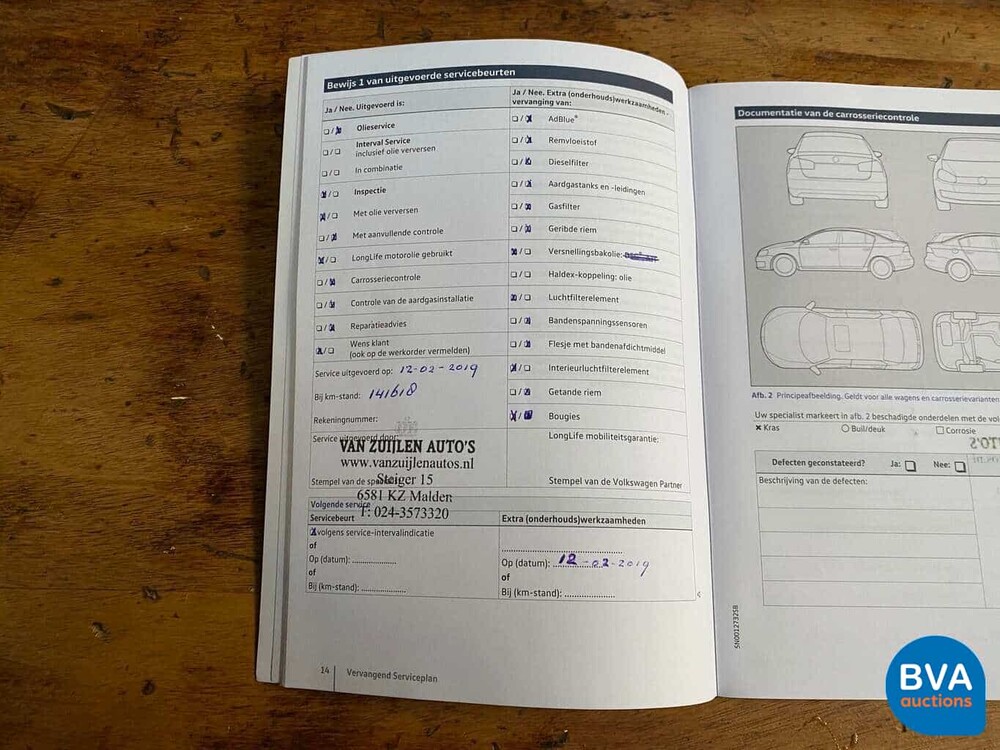 Bewijs 1 van uitgevoerde servicebeurten
Ja / Nee. Uitgevoerd is:
Olieservice
Interval Service
inclusief olie verversen
In combinatie
Inspectie
Met olie verversen
Met aanvullende controle
LongLife motorolie gebruikt
Carrosseriecontrole
Controle van de aardgasinstallatie
Reparatieadvies
Wens klant
(ook op de werkorder vermelden)
Service uitgevoerd op: 12-02-2019
Bij km-stand: 141618
Rekeningnummer:
Service uitgevoerd door:
VAN ZUIJLEN AUTO'S
www.vanzuijlenautos.nl
Steiger 15
Stempel van de
6581 KZ Malden
T: 024-3573320
Ja / Nee. Extra (onderhouds)werkzaamheden -
vervanging van:
AdBlue®
Remvloeistof
Dieselfilter
Aardgastanks en -leidingen
Gasfilter
Geribde riem
Versnellingsbakolie:
Haldex-koppeling: olie
Luchtfilterelement
Bandenspanningssensoren
Flesje met bandenafdichtmiddel
Interieurluchtfilterelement
Getande riem
Bougies
LongLife mobiliteitsgarantie:
Stempel van de Volkswagen Partner
Volgende service
Servicebeurt
Extra (onderhouds)werkzaamheden
volgens service-intervalindicatie
of
Op (datum):
of
Bij (km-stand):
Op (datum): 12-02-2019
of
Bij (km-stand):
14
Vervangend Serviceplan
Documentatie van de carrosseriecontrole
Afb. 2 Principeafbeelding. Geldt voor alle wagens en carrosserievarianten
Uw specialist markeert in afb. 2 beschadigde onderdelen met de
Kras
Buil/deuk
Corrosie
Defecten geconstateerd? Ja: Nee:
Beschrijving van de defecten:
5N0012732SB
BVA
auctions